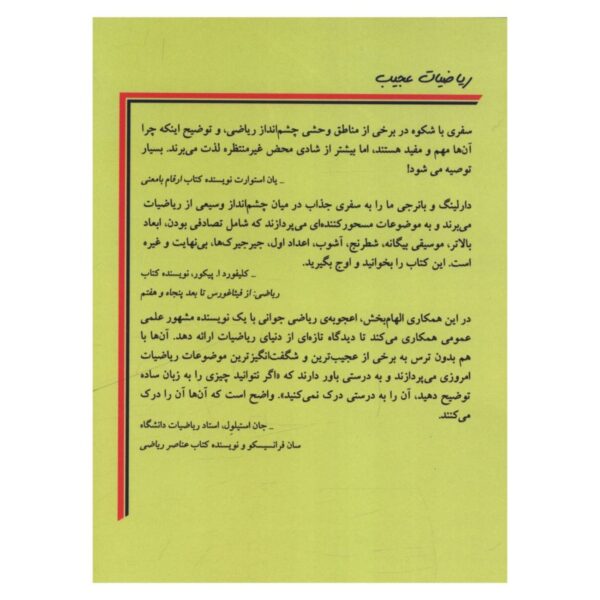 ریاضیات عجیب
سفری با شکوه در برخی از مناطق وحشی چشم‌انداز ریاضی، و توضیح اینکه چرا
آن‌ها مهم و مفید هستند، اما بیشتر از شادی محض غیرمنتظره لذت می‌برند. بسیار
توصیه می شود!
_ یان استوارت نویسنده کتاب ارقام بامعنی
دارلینگ و بانرجی ما را به سفری جذاب در میان چشم‌انداز وسیعی از ریاضیات
می‌برند و به موضوعات مسحورکننده‌ای می‌پردازند که شامل تصادفی بودن، ابعاد
بالاتر، موسیقی بیگانه، شطرنج، آشوب، اعداد اول، جیرجیرک‌ها، بی‌نهایت و غیره
است. این کتاب را بخوانید و اوج بگیرید.
_ کلیفورد ا. پیکور، نویسنده کتاب
ریاضی: از فیثاغورس تا بعد پنجاه و هفتم
در این همکاری الهام‌بخش، اعجوبه‌ی ریاضی جوانی با یک نویسنده مشهور علمی
عمومی همکاری می‌کند تا دیدگاه تازه‌ای از دنیای ریاضیات ارائه دهد. آن‌ها با
هم بدون ترس به برخی از عجیب‌ترین و شگفت‌انگیزترین موضوعات ریاضیات
امروزی می‌پردازند و به درستی باور دارند که «اگر نتوانید چیزی را به زبان ساده
توضیح دهید، آن را به درستی درک نمی‌کنید». واضح است که آن‌ها آن را درک
می‌کنند.
_ جان استیلول، استاد ریاضیات دانشگاه
سان فرانسیسکو و نویسنده کتاب عناصر ریاضی